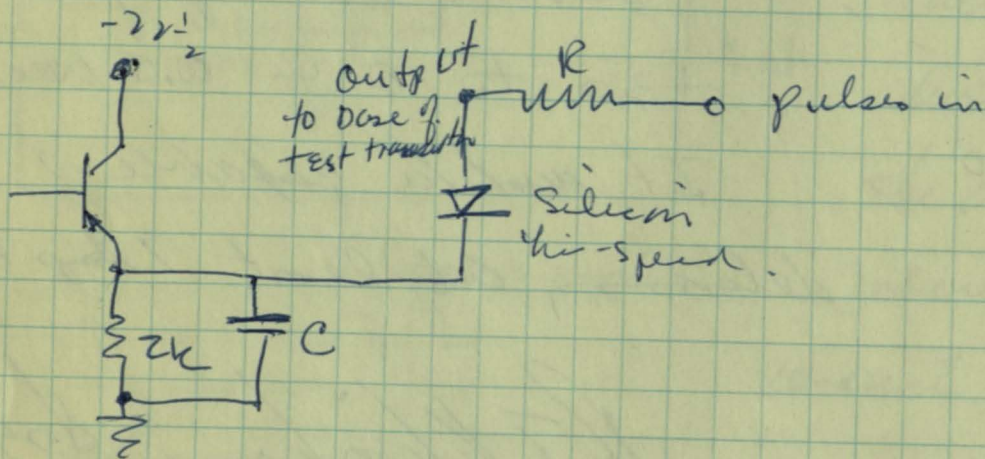 -22½
output
to base of
test transistor
R
pulses in
Silicon
hi-speed.
2K
C